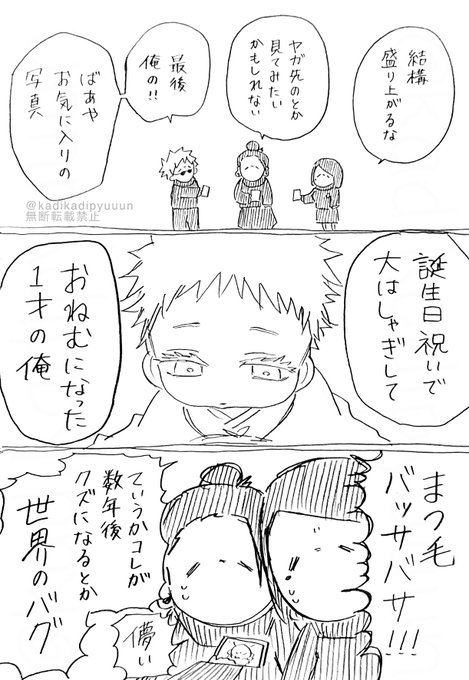 結構
盛り上がるな
ヤガ先のとか
見てみたい
かもしれない
最後
俺の!!
ばあや
お気に入りの
写真
@kadikadipyuuun
無断転載禁止
誕生日祝いで
大はしゃぎして
おねむになった
1才の俺
まつ毛
バッサバサ!!!
ていうかコレが
数年後
クズになるとか
世界のバグ
儚い